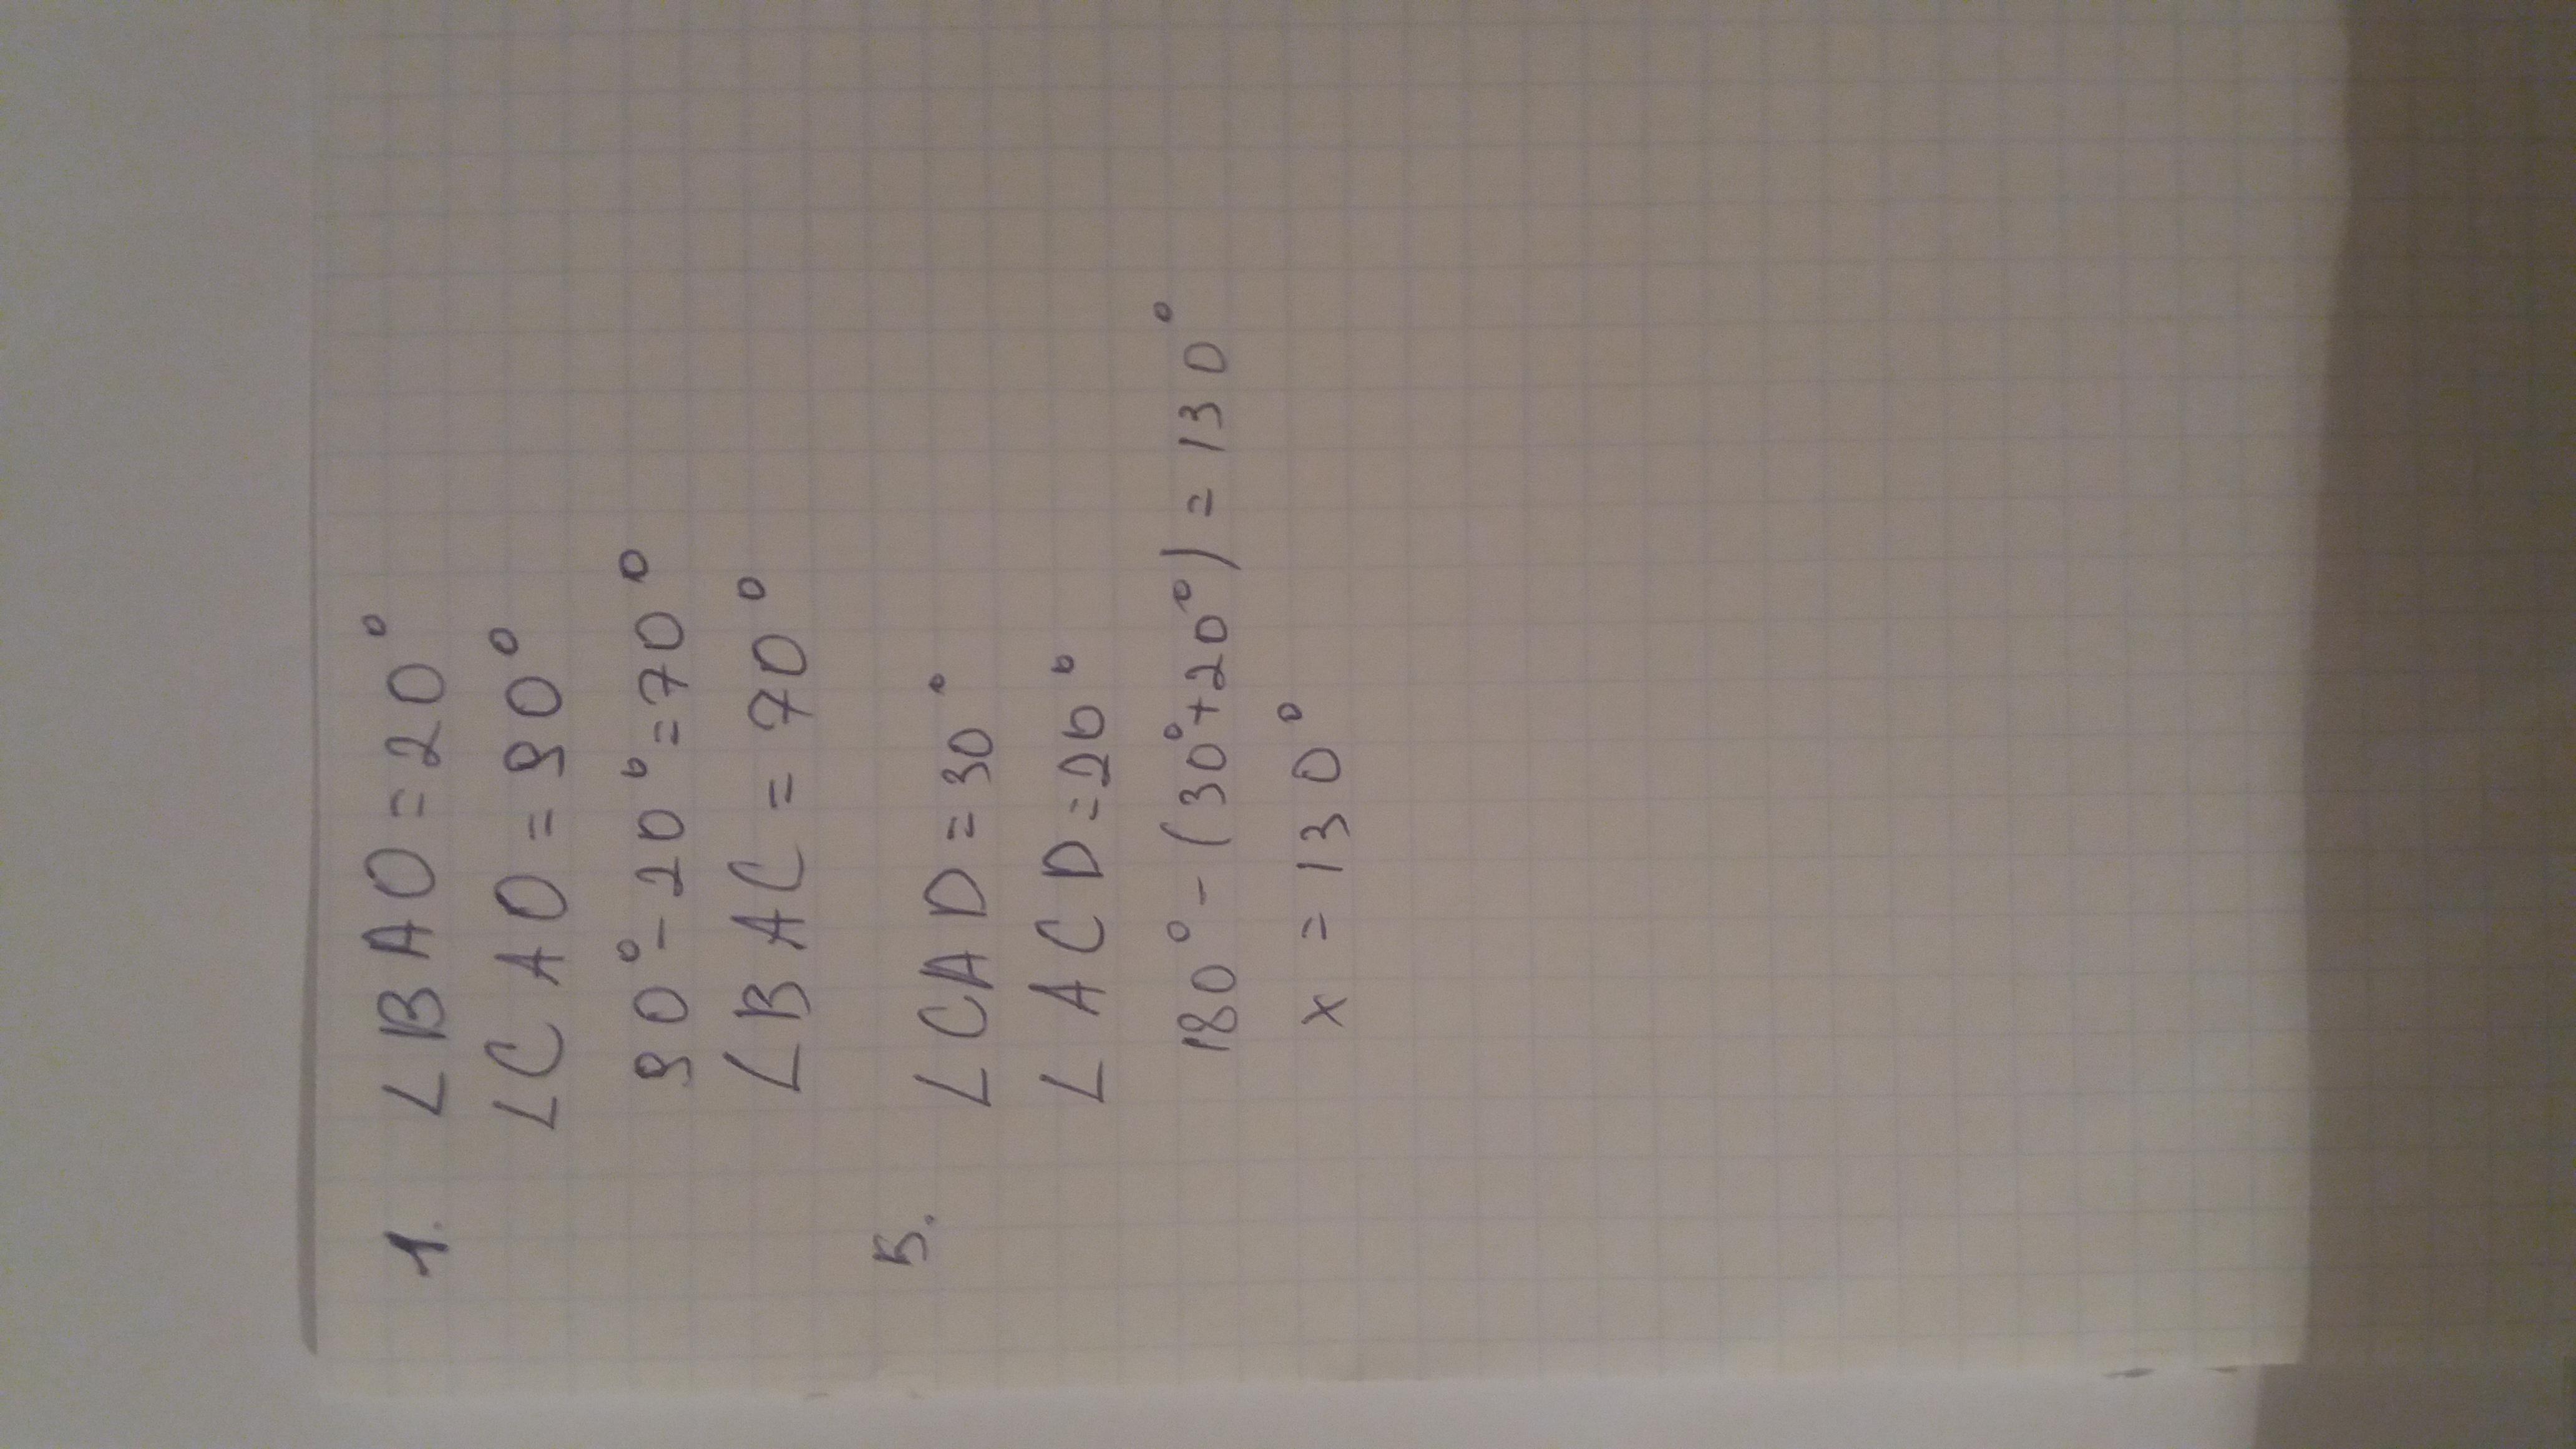 1. ∠BAO=20°
∠CAO=90°
90°-20°=70°
∠BAC=70°
B. ∠CAD=30°
∠ACD=20°
180°-(30°+20°)=130°
x=130°